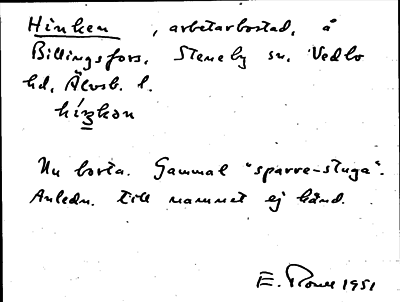 Hinken, arbetarbostad, å
Billingsfors, Steneby sn, Vedbo
hd, Älvsb. l.
híŋkən
Nu borta. Gammal "sparre-stuga".
Anledn. till namnet ej känd.
E. 1951